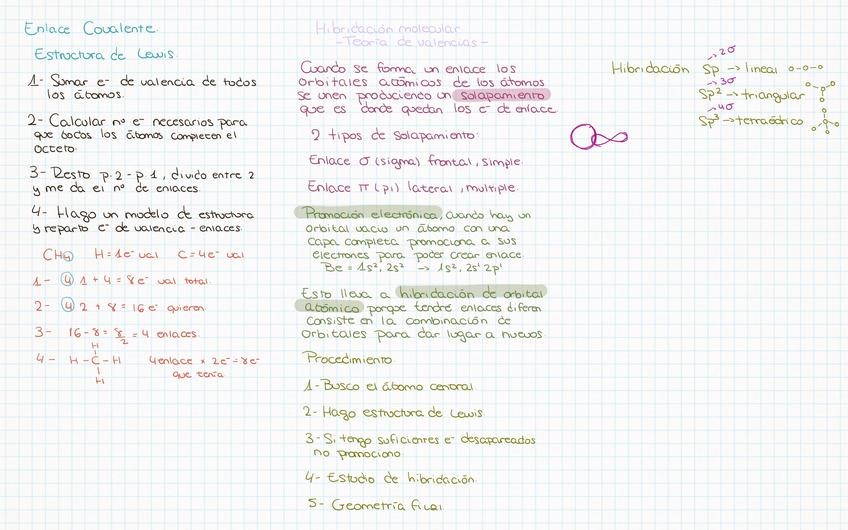 Enlace Covalente.
Estructura de Lewis.
1- Sumar e- de valencia de todos
los átomos.
2- Calcular nº e- necesarios para
que todos los átomos completen el
octeto.
3- Resto p.2 - p 1, divido entre 2
y me da el nº de enlaces.
4- Hago un modelo de estructura
y reparto e- de valencia - enlaces.
CH4 H = 1e- val C = 4e- val
1- 4 1 + 4 = 8e- val total.
2- 4 2 + 8 = 16 e- quieren.
3- 16-8 = 8/2 = 4 enlaces.
H
4- H-C-H 4enlace x 2e- = 8e-
H
que tenía
Hibridación molecular
- Teoría de valencias -
Cuando se forma un enlace los
orbitales atómicos de los átomos
se unen produciendo un solapamiento
que es donde quedan los e- de enlace.
2 tipos de solapamiento:
Enlace σ (sigma) frontal, simple.
Enlace π (pi) lateral, multiple.
Promoción electrónica, cuando hay un
orbital vacio un átomo con una
capa completa promociona a sus
electrones para poder crear enlace.
Be = 1s², 2s² → 1s², 2s¹ 2p¹
Esto lleva a hibridación de orbital
atómico porque tendré enlaces diferen
consiste en la combinación de
orbitales para dar lugar a nuevos
Procedimiento
1- Busco el átomo central.
2- Hago estructura de Lewis
3- Si tengo suficientes e- desapareados
no promociono.
4- Estudio de hibridación.
5- Geometría final.
→2σ
Hibridación Sp → lineal
→3σ
Sp² → triangular
→4σ
Sp³ → tetraédrico